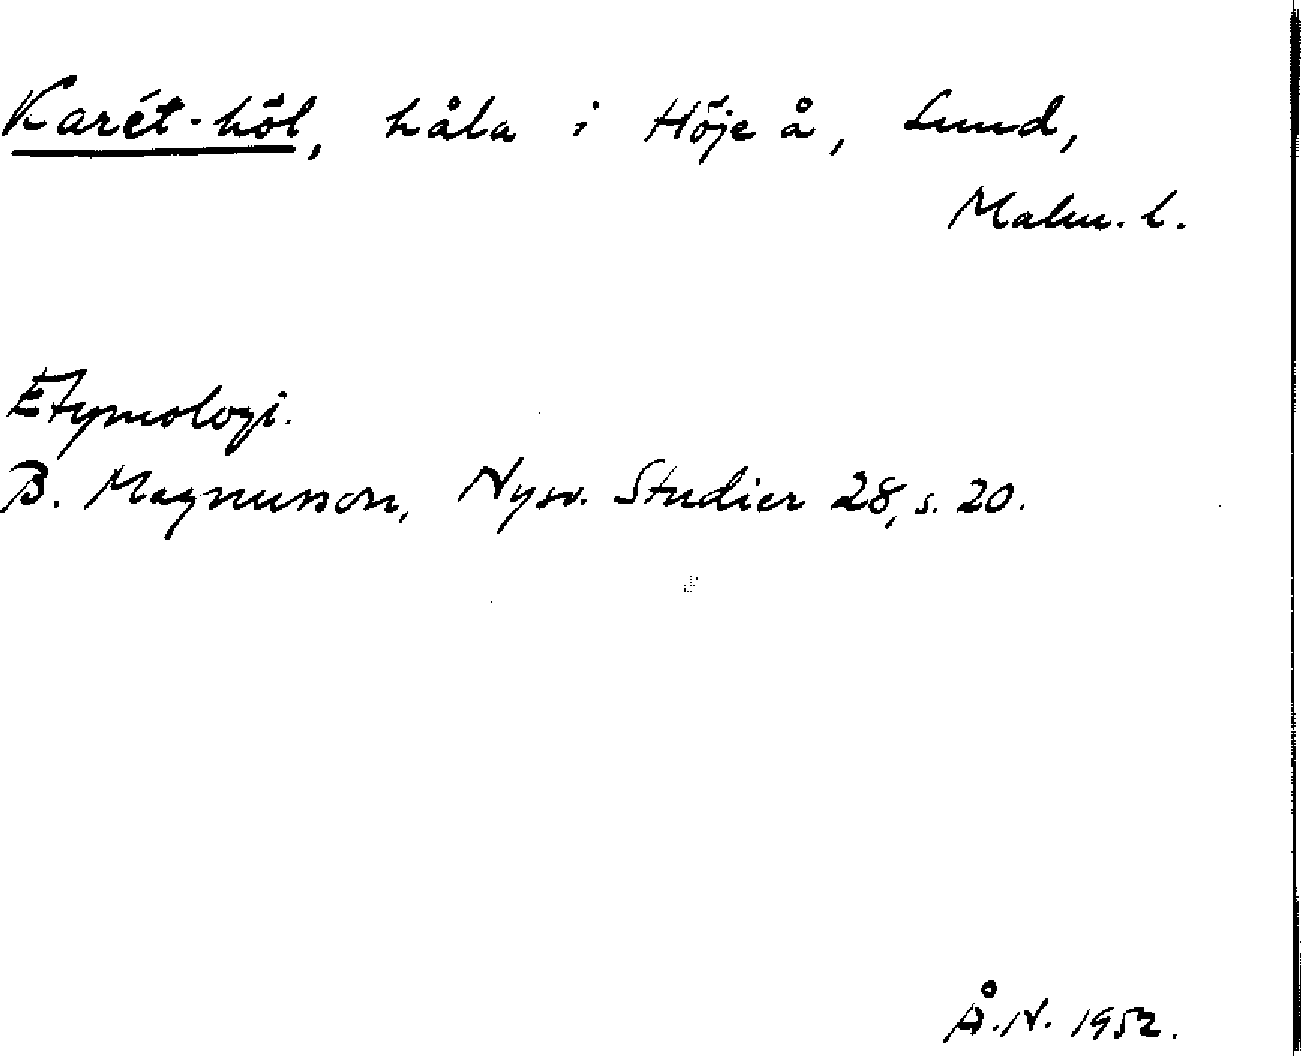 Karét-höl, håla i Höje å, Lund,
Malm. l.
Etymologi.
B. Magnusson, Nysv. Studier 28, s. 20.
Å. N. 1952.